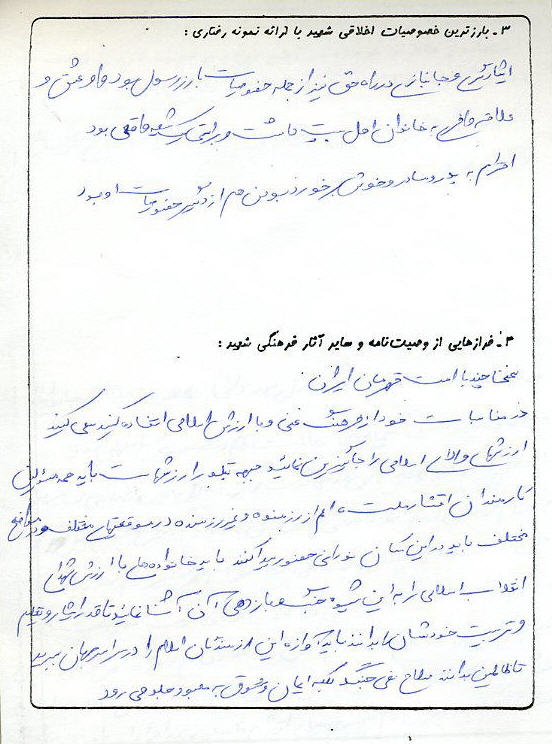 ۳ ـ بارزترین خصوصیات اخلاقی شهید با ارائه نمونه رفتاری :
ایثارگری و جانبازی در راه حق نیز از جمله خصوصیات بارز رسول بود و او عشق و
علاقه وافری به خاندان اهل بیت داشت و براستی که شیعه واقعی بود
احترام به پدر و مادر و خوش برخورد بودن هم از دیگر خصوصیات او بود
۴ـ فرازهایی از وصیت‌نامه و سایر آثار فرهنگی شهید :
سخنی چند با امت قهرمان ایران
در مناسبات خود از فرهنگ غنی و با ارزش اسلامی استفاده کنید سعی کنید
ارزشهای والای اسلامی را جایگزین نمائید جبهه تبلور ارزشهاست باید همه مسئولین
کارمندان اقشار ملت اعم از رزمنده و غیر رزمنده در موقعیتهای مختلف و در مواضع
مختلف باید در این مکان نورانی حضور پیدا کنند باید خانواده‌های با ارزش شهدای
انقلاب اسلامی را به این شیوه جنگ و بازدهی آن آشنا نمائید تا قدر ایثار و تعلیم
و تربیت خودشان را بدانند باید آوازه این رزمندگان اسلام را در سراسر جهان ببرید
تا ظالمین بدانند سلاح نمی‌جنگد بلکه ایمان و شوق به معبود جلو می‌رود